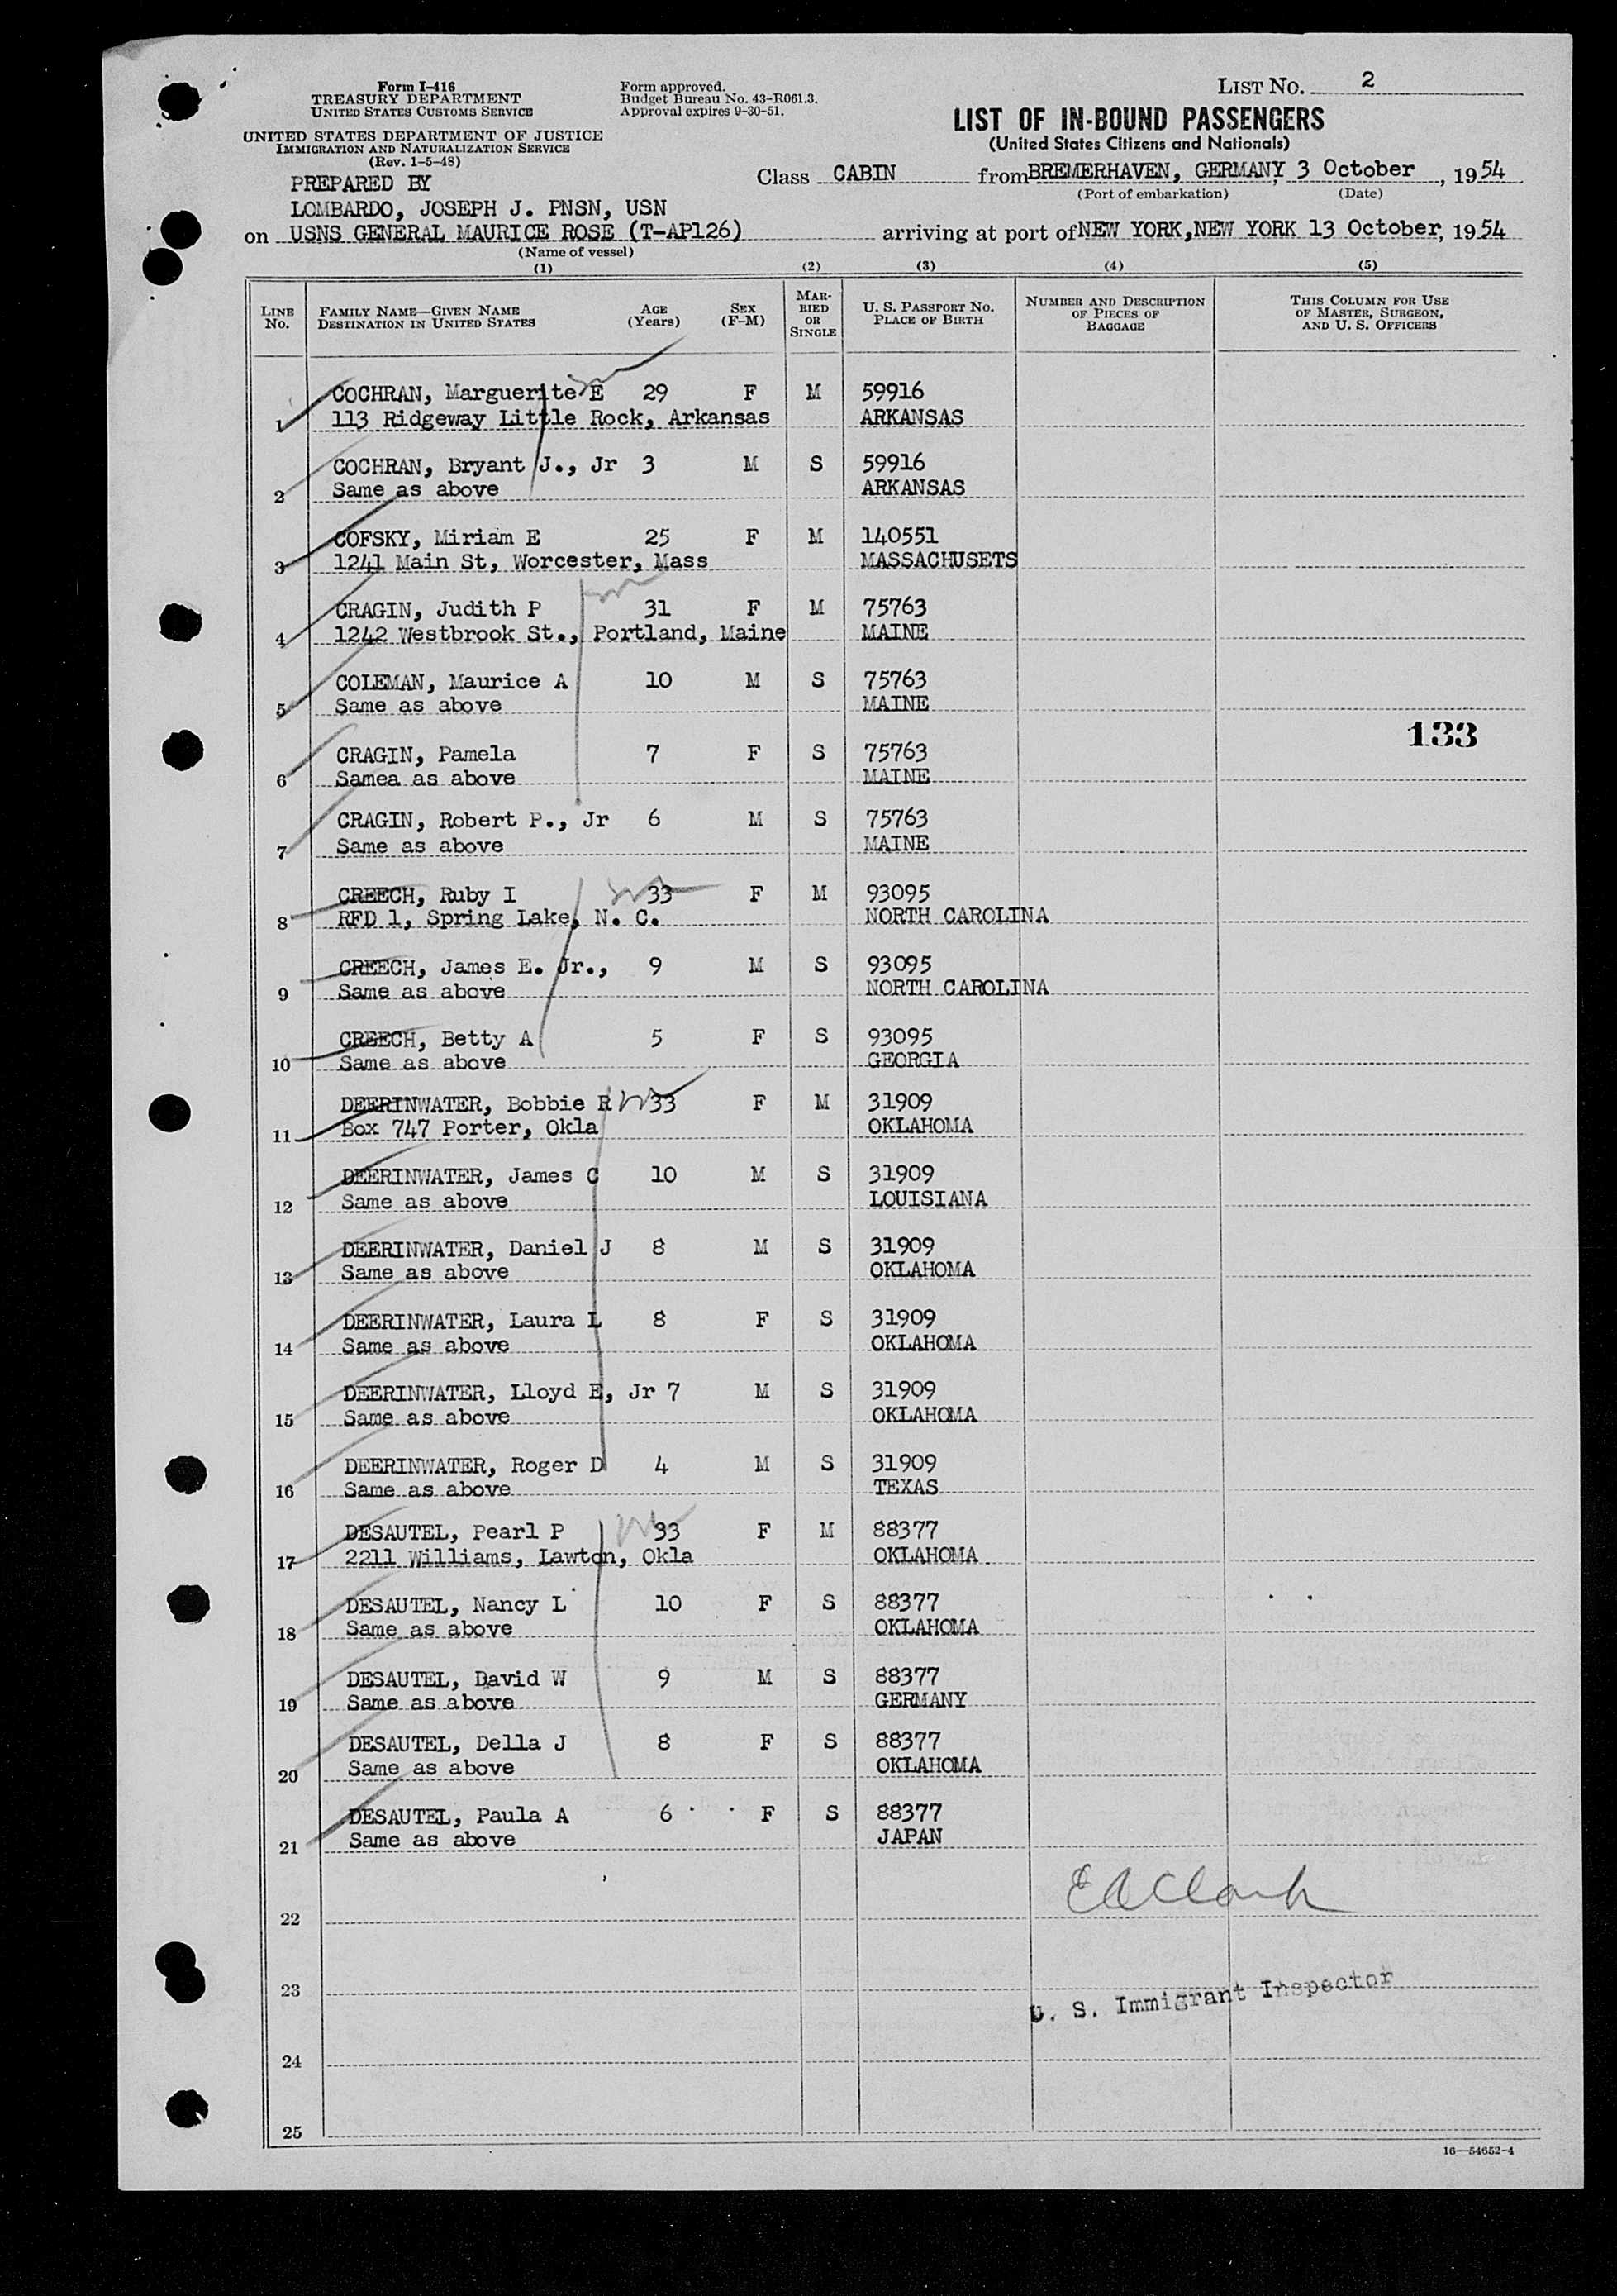 Form I-416
TREASURY DEPARTMENT
UNITED STATES CUSTOMS SERVICE
UNITED STATES DEPARTMENT OF JUSTICE
IMMIGRATION AND NATURALIZATION SERVICE
(Rev. 1-5-48)
Form approved.
Budget Bureau No. 43-R061.3.
Approval expires 9-30-51.
LIST No. 2
LIST OF IN-BOUND PASSENGERS
(United States Citizens and Nationals)
PREPARED BY
LOMBARDO, JOSEPH J. PNSN, USN
Class CABIN from BREMERHAVEN, GERMANY, 3 October, 1954
(Port of embarkation) (Date)
on USNS GENERAL MAURICE ROSE (T-AP126) arriving at port of NEW YORK, NEW YORK 13 October, 1954
(Name of vessel)
(1) (2) (3) (4) (5)
LINE No. FAMILY NAME—GIVEN NAME DESTINATION IN UNITED STATES AGE (Years) SEX (F-M) MARRIED OR SINGLE U. S. PASSPORT No. PLACE OF BIRTH NUMBER AND DESCRIPTION OF PIECES OF BAGGAGE THIS COLUMN FOR USE OF MASTER, SURGEON, AND U. S. OFFICERS
COCHRAN, Marguerite E 29 F M 59916
1 113 Ridgeway Little Rock, Arkansas ARKANSAS
COCHRAN, Bryant J., Jr 3 M S 59916
2 Same as above ARKANSAS
COFSKY, Miriam E 25 F M 140551
3 1241 Main St, Worcester, Mass MASSACHUSETS
CRAGIN, Judith P 31 F M 75763
4 1242 Westbrook St., Portland, Maine MAINE
COLEMAN, Maurice A 10 M S 75763
5 Same as above MAINE
133
CRAGIN, Pamela 7 F S 75763
6 Samea as above MAINE
CRAGIN, Robert P., Jr 6 M S 75763
7 Same as above MAINE
CREECH, Ruby I 33 F M 93095
8 RFD 1, Spring Lake, N. C. NORTH CAROLINA
CREECH, James E. Jr., 9 M S 93095
9 Same as above NORTH CAROLINA
CREECH, Betty A 5 F S 93095
10 Same as above GEORGIA
DEERINWATER, Bobbie R 33 F M 31909
11 Box 747 Porter, Okla OKLAHOMA
DEERINWATER, James C 10 M S 31909
12 Same as above LOUISIANA
DEERINWATER, Daniel J 8 M S 31909
13 Same as above OKLAHOMA
DEERINWATER, Laura L 8 F S 31909
14 Same as above OKLAHOMA
DEERINWATER, Lloyd E, Jr 7 M S 31909
15 Same as above OKLAHOMA
DEERINWATER, Roger D 4 M S 31909
16 Same as above TEXAS
DESAUTEL, Pearl P 33 F M 88377
17 2211 Williams, Lawton, Okla OKLAHOMA
DESAUTEL, Nancy L 10 F S 88377
18 Same as above OKLAHOMA
DESAUTEL, David W 9 M S 88377
19 Same as above GERMANY
DESAUTEL, Della J 8 F S 88377
20 Same as above OKLAHOMA
DESAUTEL, Paula A 6 F S 88377
21 Same as above JAPAN
E A Clark
22
23
U. S. Immigrant Inspector
24
25
16—54652-4